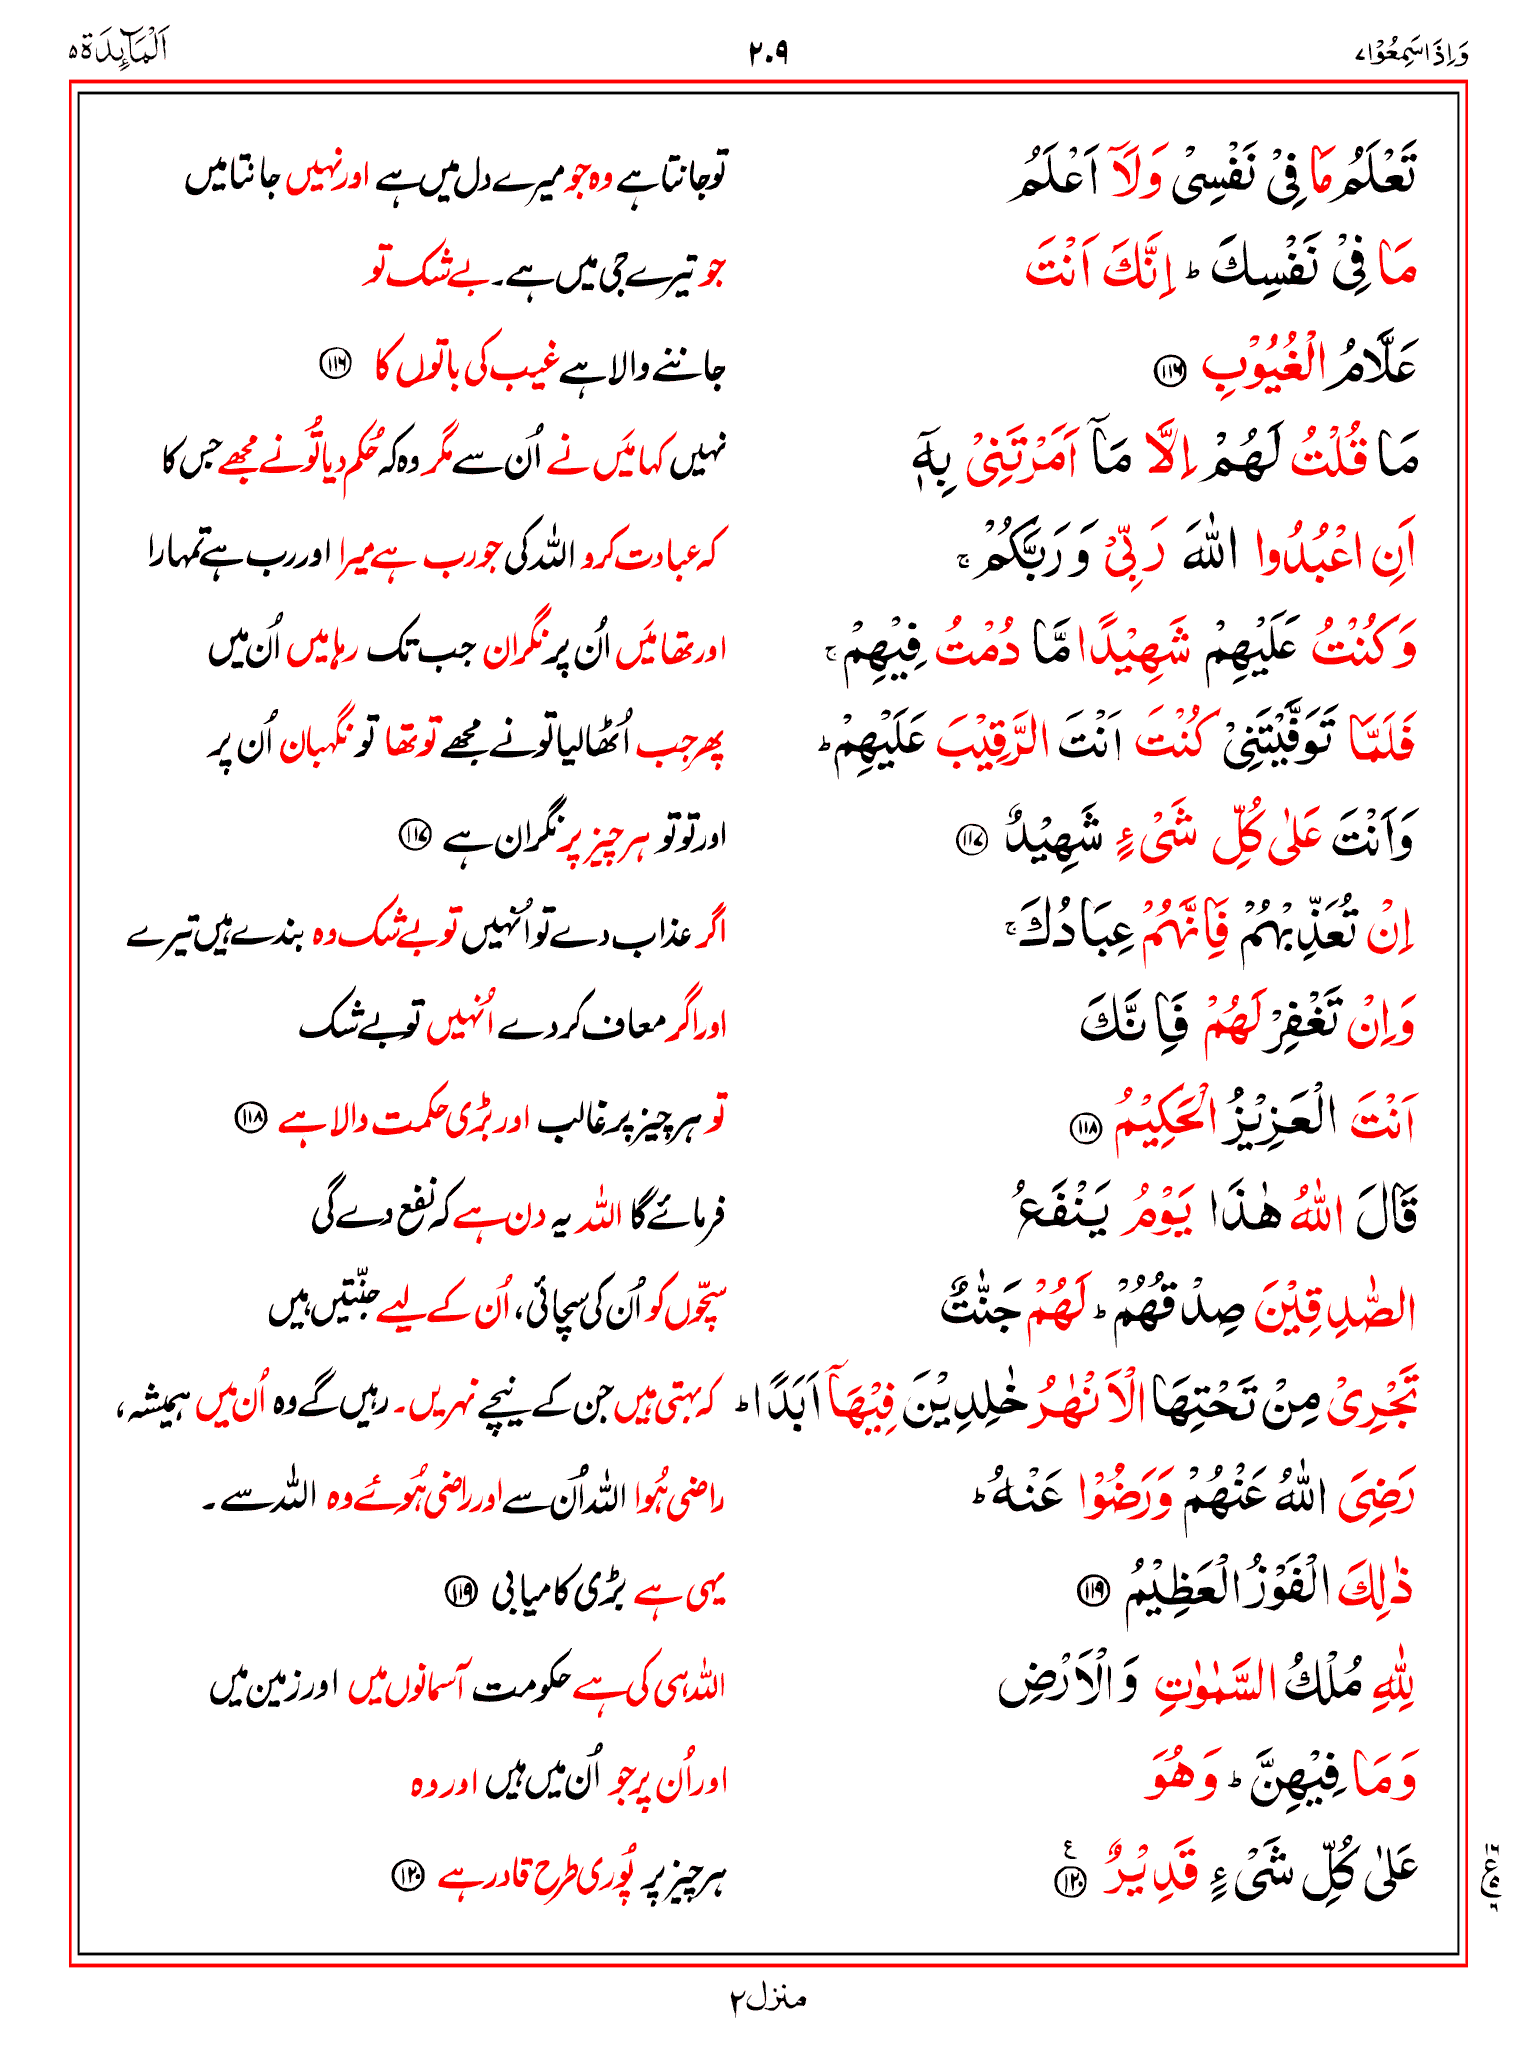 وَاِذَا سَمِعُوْا ۷ ۲۰۹ اَلْمَآئِدَة ۵
تَعْلَمُ مَا فِىْ نَفْسِىْ وَلَآ اَعْلَمُ تو جانتا ہے وہ جو میرے دل میں ہے اور نہیں جانتا میں
مَا فِىْ نَفْسِكَ ؕ اِنَّكَ اَنْتَ جو تیرے جی میں ہے۔ بے شک تو
عَلَّامُ الْغُيُوْبِ ﴿۱۱۶﴾ جاننے والا ہے غیب کی باتوں کا ﴿۱۱۶﴾
مَا قُلْتُ لَهُمْ اِلَّا مَآ اَمَرْتَنِىْ بِهٖۤ نہیں کہا میَں نے اُن سے مگر وہ کہ حُکم دیا تُو نے مجھے جس کا
اَنِ اعْبُدُوا اللّٰهَ رَبِّىْ وَ رَبَّكُمْ ۚ کہ عبادت کرو اللہ کی جو رب ہے میرا اور رب ہے تمہارا
وَكُنْتُ عَلَيْهِمْ شَهِيْدًا مَّا دُمْتُ فِيْهِمْ ۚ اور تھا میَں اُن پر نگران جب تک رہا میں اُن میں
فَلَمَّا تَوَفَّيْتَنِىْ كُنْتَ اَنْتَ الرَّقِيْبَ عَلَيْهِمْ ؕ پھر جب اُٹھا لیا تو نے مجھے تو تھا تو نگہبان اُن پر
وَاَنْتَ عَلٰى كُلِّ شَىْءٍ شَهِيْدٌ ﴿۱۱۷﴾ اور تو تو ہر چیز پر نگران ہے ﴿۱۱۷﴾
اِنْ تُعَذِّبْهُمْ فَاِنَّهُمْ عِبَادُكَ ۚ اگر عذاب دے تو اُنہیں تو بے شک وہ بندے ہیں تیرے
وَاِنْ تَغْفِرْ لَهُمْ فَاِنَّكَ اور اگر معاف کر دے اُنہیں تو بے شک
اَنْتَ الْعَزِيْزُ الْحَكِيْمُ ﴿۱۱۸﴾ تو ہر چیز پر غالب اور بڑی حکمت والا ہے ﴿۱۱۸﴾
قَالَ اللّٰهُ هٰذَا يَوْمُ يَنْفَعُ فرمائے گا اللہ یہ دن ہے کہ نفع دے گی
الصّٰدِقِيْنَ صِدْقُهُمْ ؕ لَهُمْ جَنّٰتٌ سچّوں کو اُن کی سچائی، اُن کے لیے جنّتیں ہیں
تَجْرِىْ مِنْ تَحْتِهَا الْاَنْهٰرُ خٰلِدِيْنَ فِيْهَاۤ اَبَدًا ؕ کہ بہتی ہیں جن کے نیچے نہریں۔ رہیں گے وہ اُن میں ہمیشہ،
رَضِىَ اللّٰهُ عَنْهُمْ وَرَضُوْا عَنْهُ ؕ راضی ہُوا اللہ اُن سے اور راضی ہُوئے وہ اللہ سے۔
ذٰلِكَ الْفَوْزُ الْعَظِيْمُ ﴿۱۱۹﴾ یہی ہے بڑی کامیابی ﴿۱۱۹﴾
لِلّٰهِ مُلْكُ السَّمٰوٰتِ وَالْاَرْضِ اللہ ہی کی ہے حکومت آسمانوں میں اور زمین میں
وَمَا فِيْهِنَّ ؕ وَهُوَ اور اُن پر جو اُن میں ہیں اور وہ
عَلٰى كُلِّ شَىْءٍ قَدِيْرٌ ﴿۱۲۰﴾ ع ہر چیز پر پُوری طرح قادر ہے ﴿۱۲۰﴾
منزل ۲